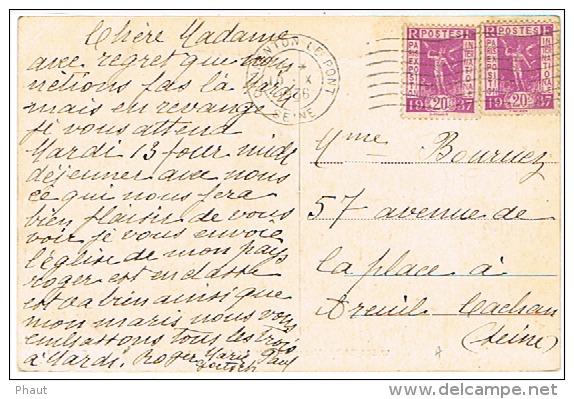 Chère Madame
avec regret que nous
n'étions pas là Mardi
mais en revange
je vous attend
Mardi 13 pour midi
déjeuner avec nous
ce qui nous fera
bien plaisir de vous
voir je vous envoie
l'église de mon pays
roger est en classe
est va bien ainsi que
mon maris nous vous
embrassons tous les trois
à Mardi. Roger Marie Paul
CHARENTON LE PONT
SEINE
RF POSTES
PARIS EXPOSITION INTERNATIONALE
19 20c 37
RF POSTES
PARIS EXPOSITION INTERNATIONALE
19 20c 37
Mme Bournez
57 avenue de
la place à
Arcueil Cachan
(Seine)
Phaut
www.delcampe.net